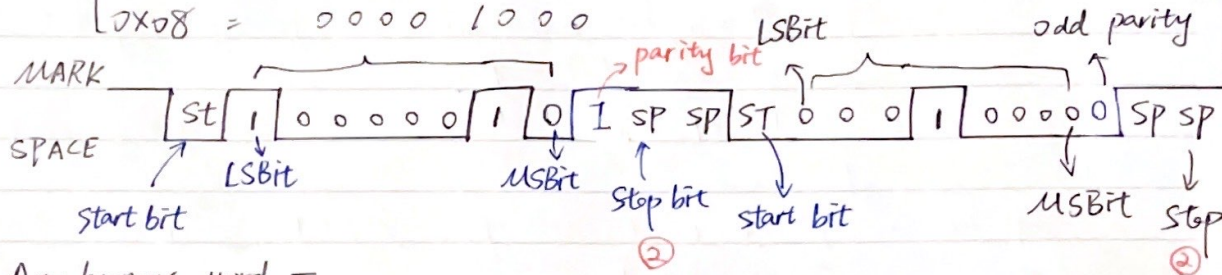 0x08 = 0000 1000
LSBit odd parity
MARK parity bit
St 1 0 0 0 0 0 1 0 1 SP SP ST 0 0 0 1 0 0 0 0 0 SP SP
SPACE
LSBit MSBit Stop bit start bit MSBit Stop
Start bit
② ②